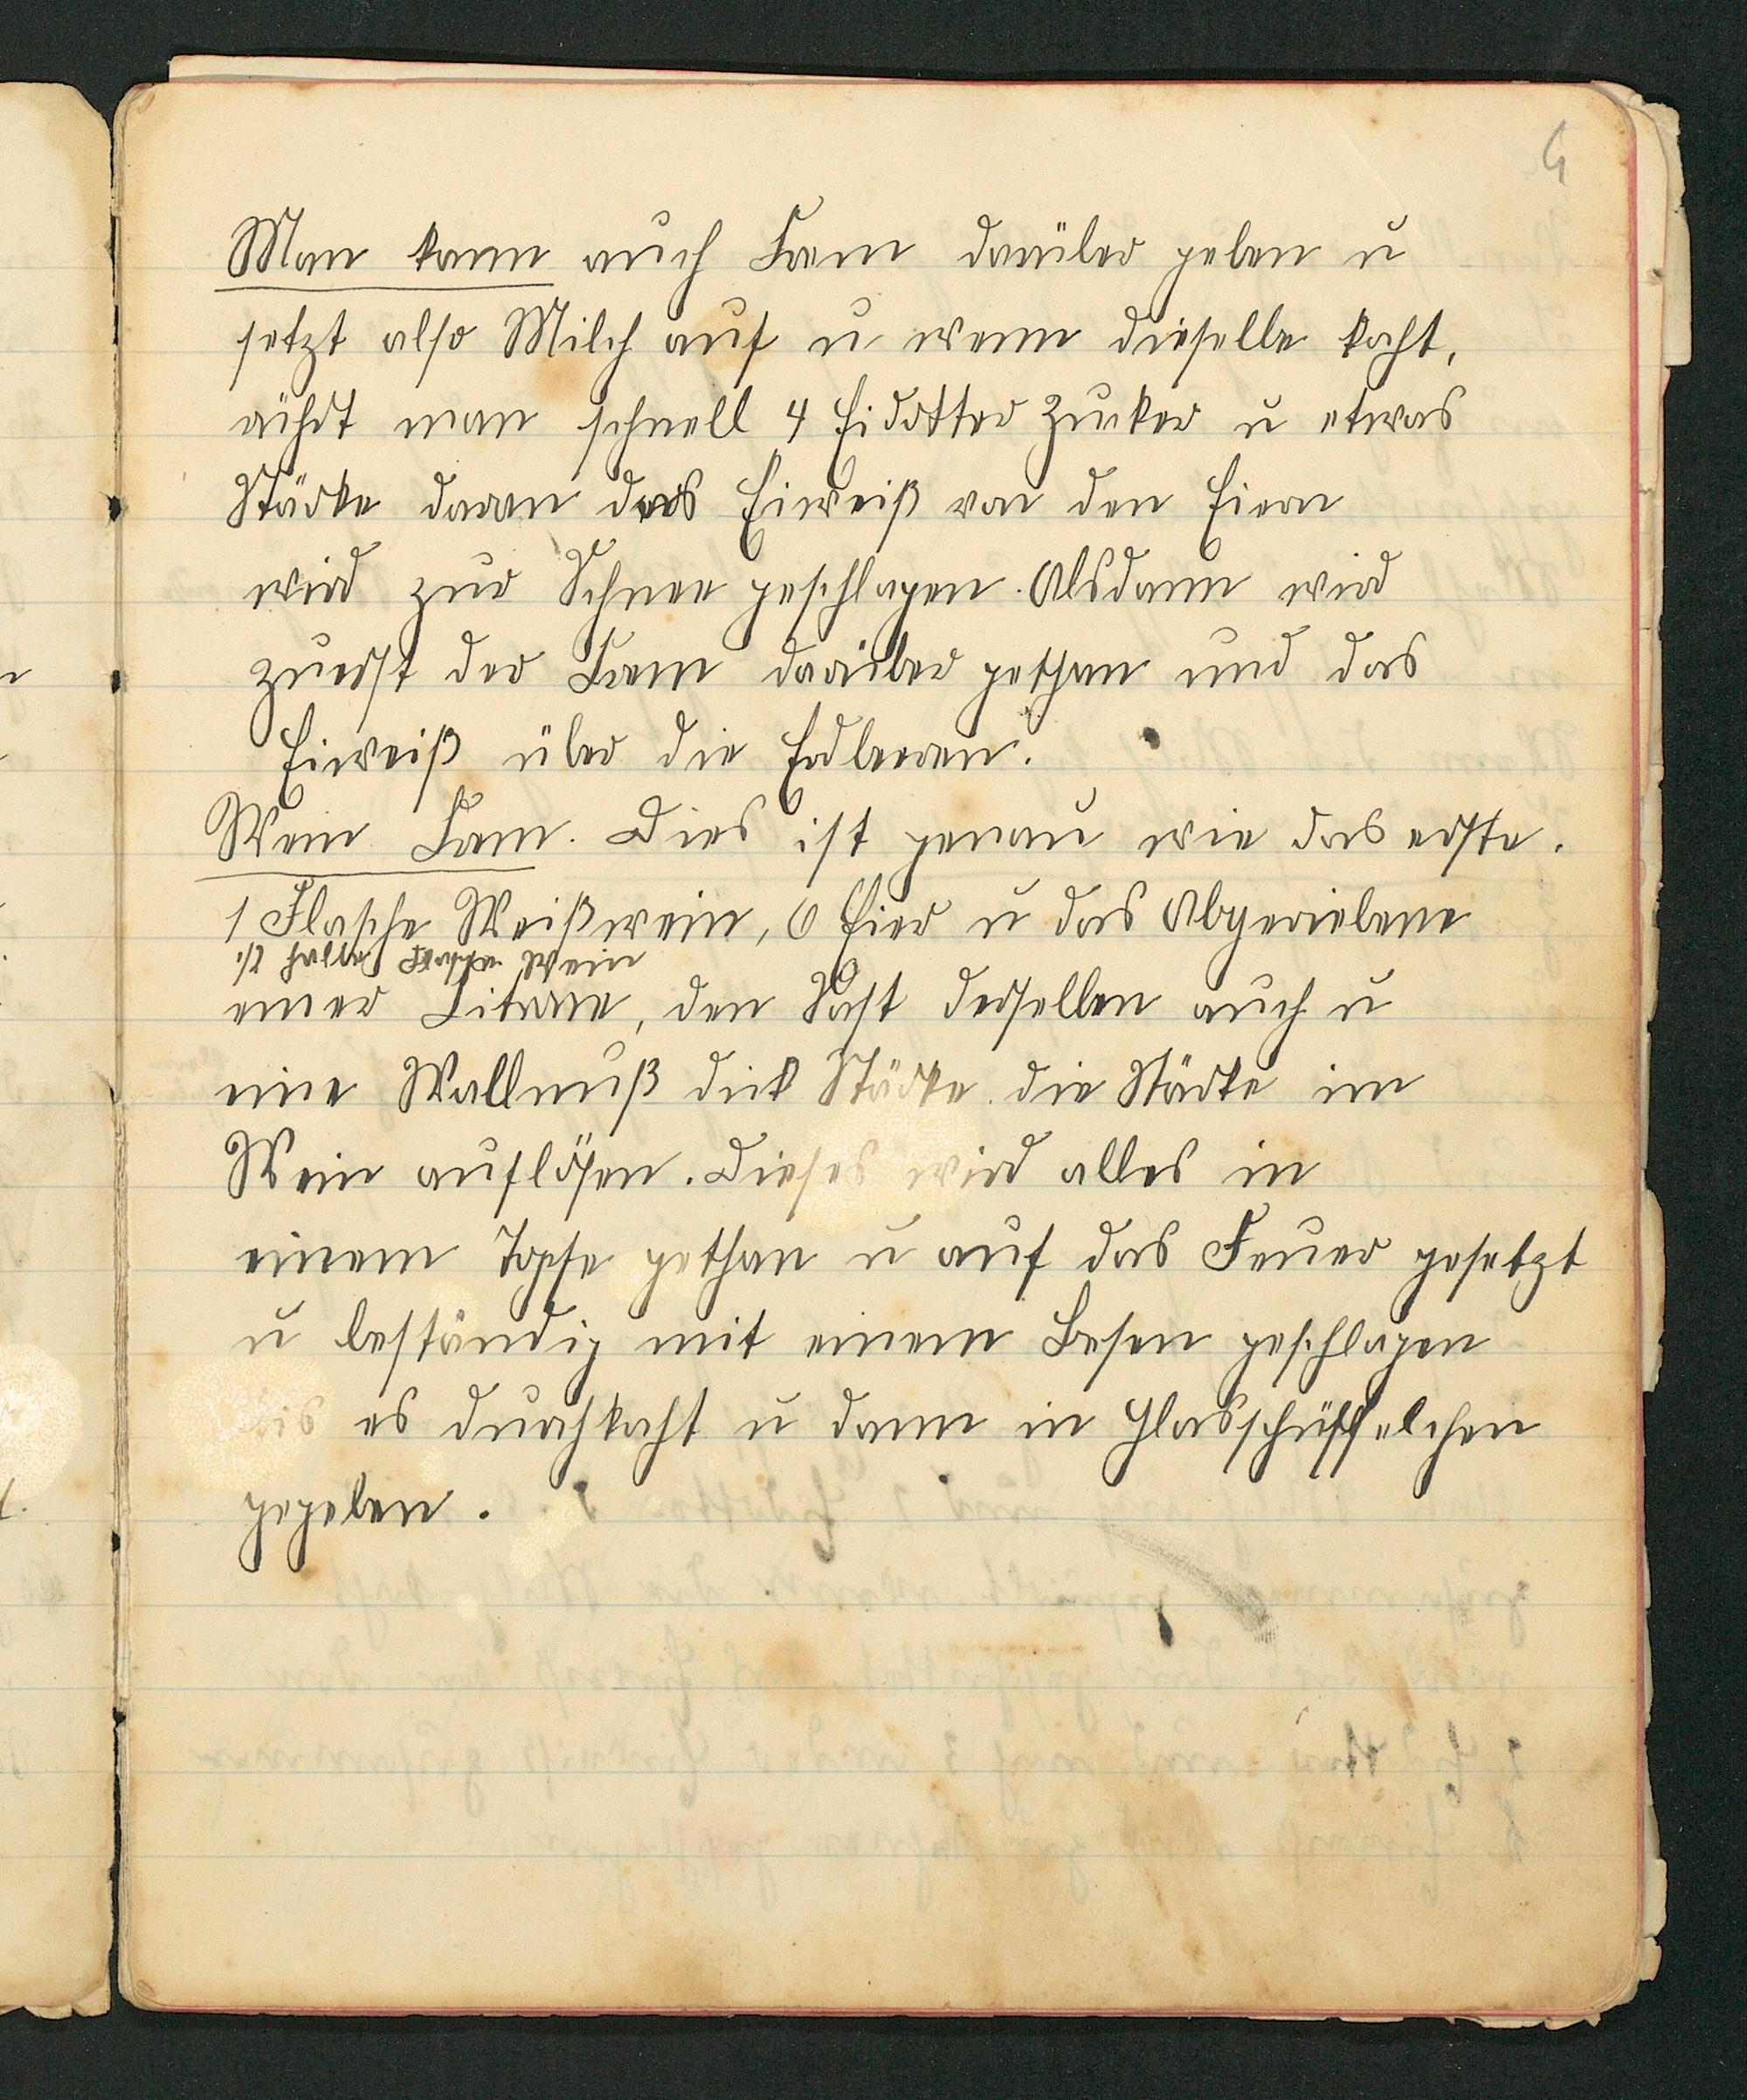 Man kann auch Crem darüber geben u
setzt also Milch auf u wenn dieselbe kocht,
rührt man schnell 4 Eidotter Zucker u etwas
Stärke daran das Eiweiß von den Eiern
wird zur Schnee geschlagen. Alsdann wird
zuerst der Crem darüber gethan und das
Eiweiß über die Erdbeeren.
Wein Crem. Dies ist genau wie das erste.
1 Flasche Weißwein, 6 Eier u das Abgeriebene
1/2 halbe Flasche Wein
einer Citrone, den Saft derselben auch u
eine Wallnuß dick Stärke. die Stärke im
Wein auflösen. Dieses wird alles in
einem Topfe gethan u auf das Feuer gesetzt
u beständig mit einem Besen geschlagen
bis es durchkocht u dann in Glasschüsselchen
gegeben.